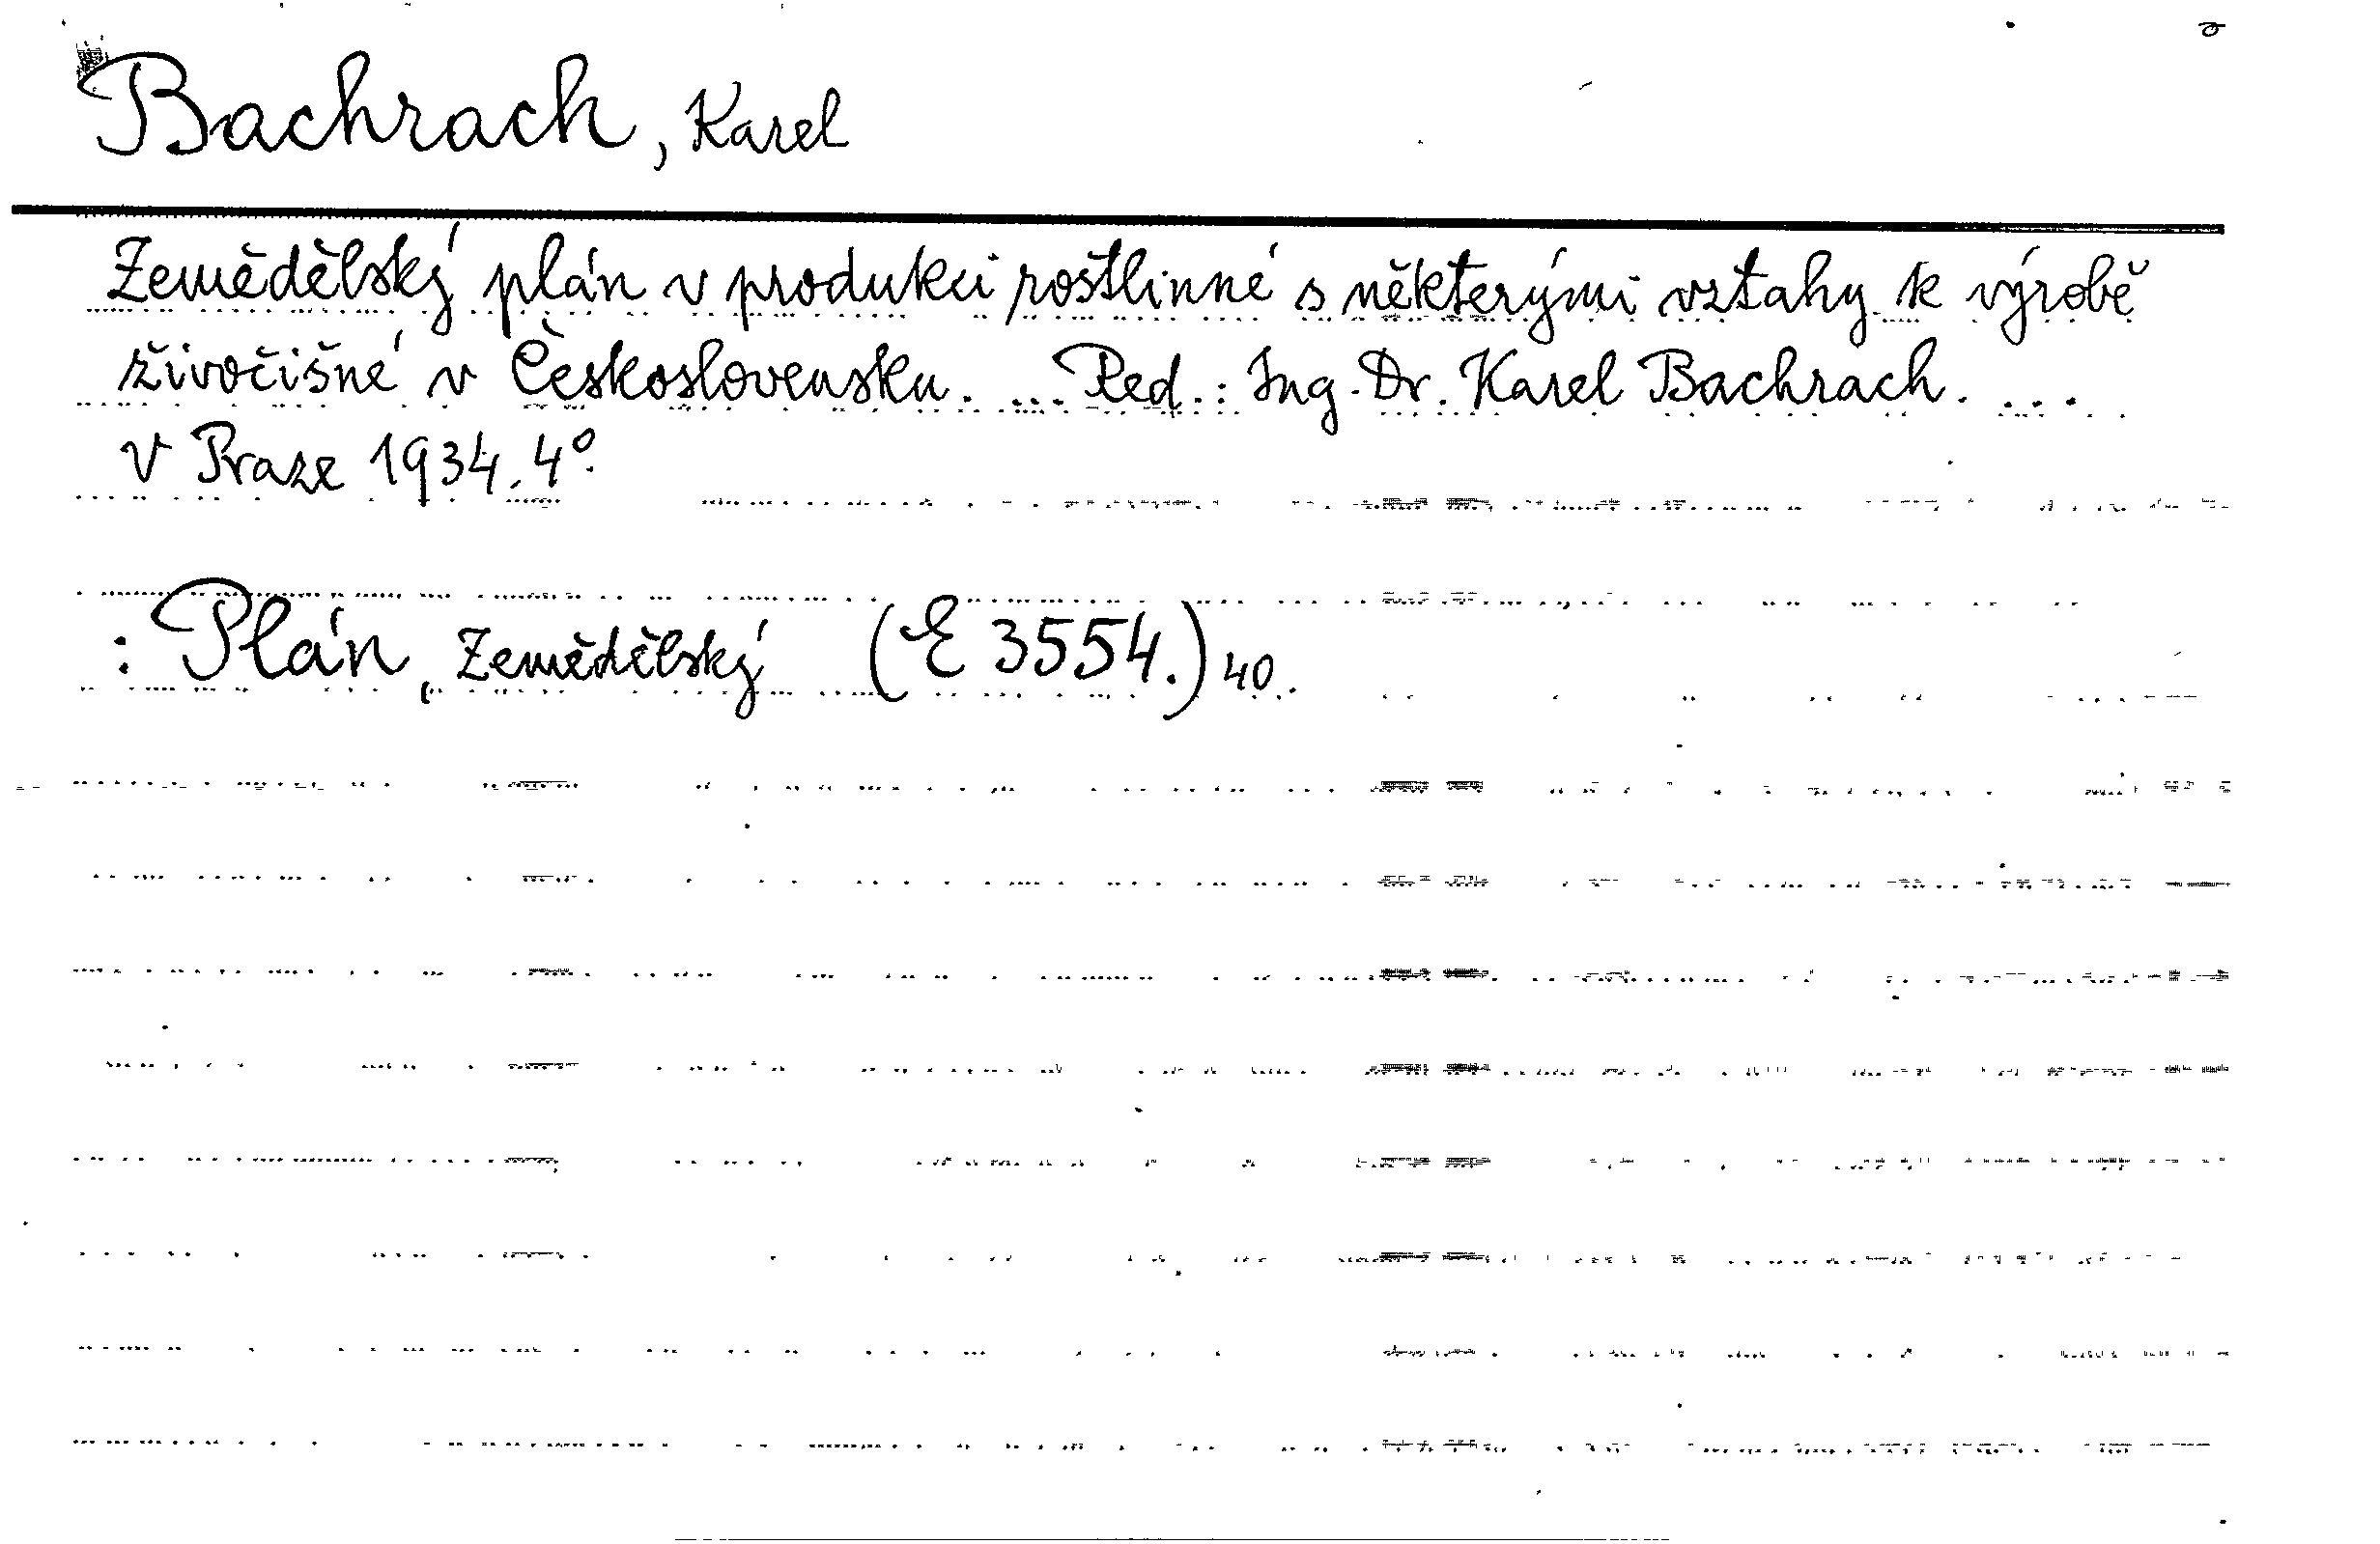 Bachrach, Karel
Zemědělský plán v produkci rostlinné s některými vztahy k výrobě
živočišné v Československu. ... Red.: Ing. Dr. Karel Bachrach. ...
V Praze 1934. 4°.
: Plán, Zemědělský (E 3554.) 40.